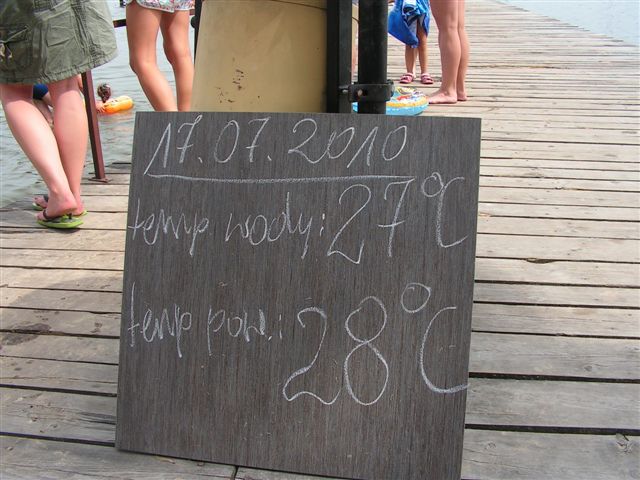 17.07.2010
temp wody: 27°C
temp pow.: 28°C